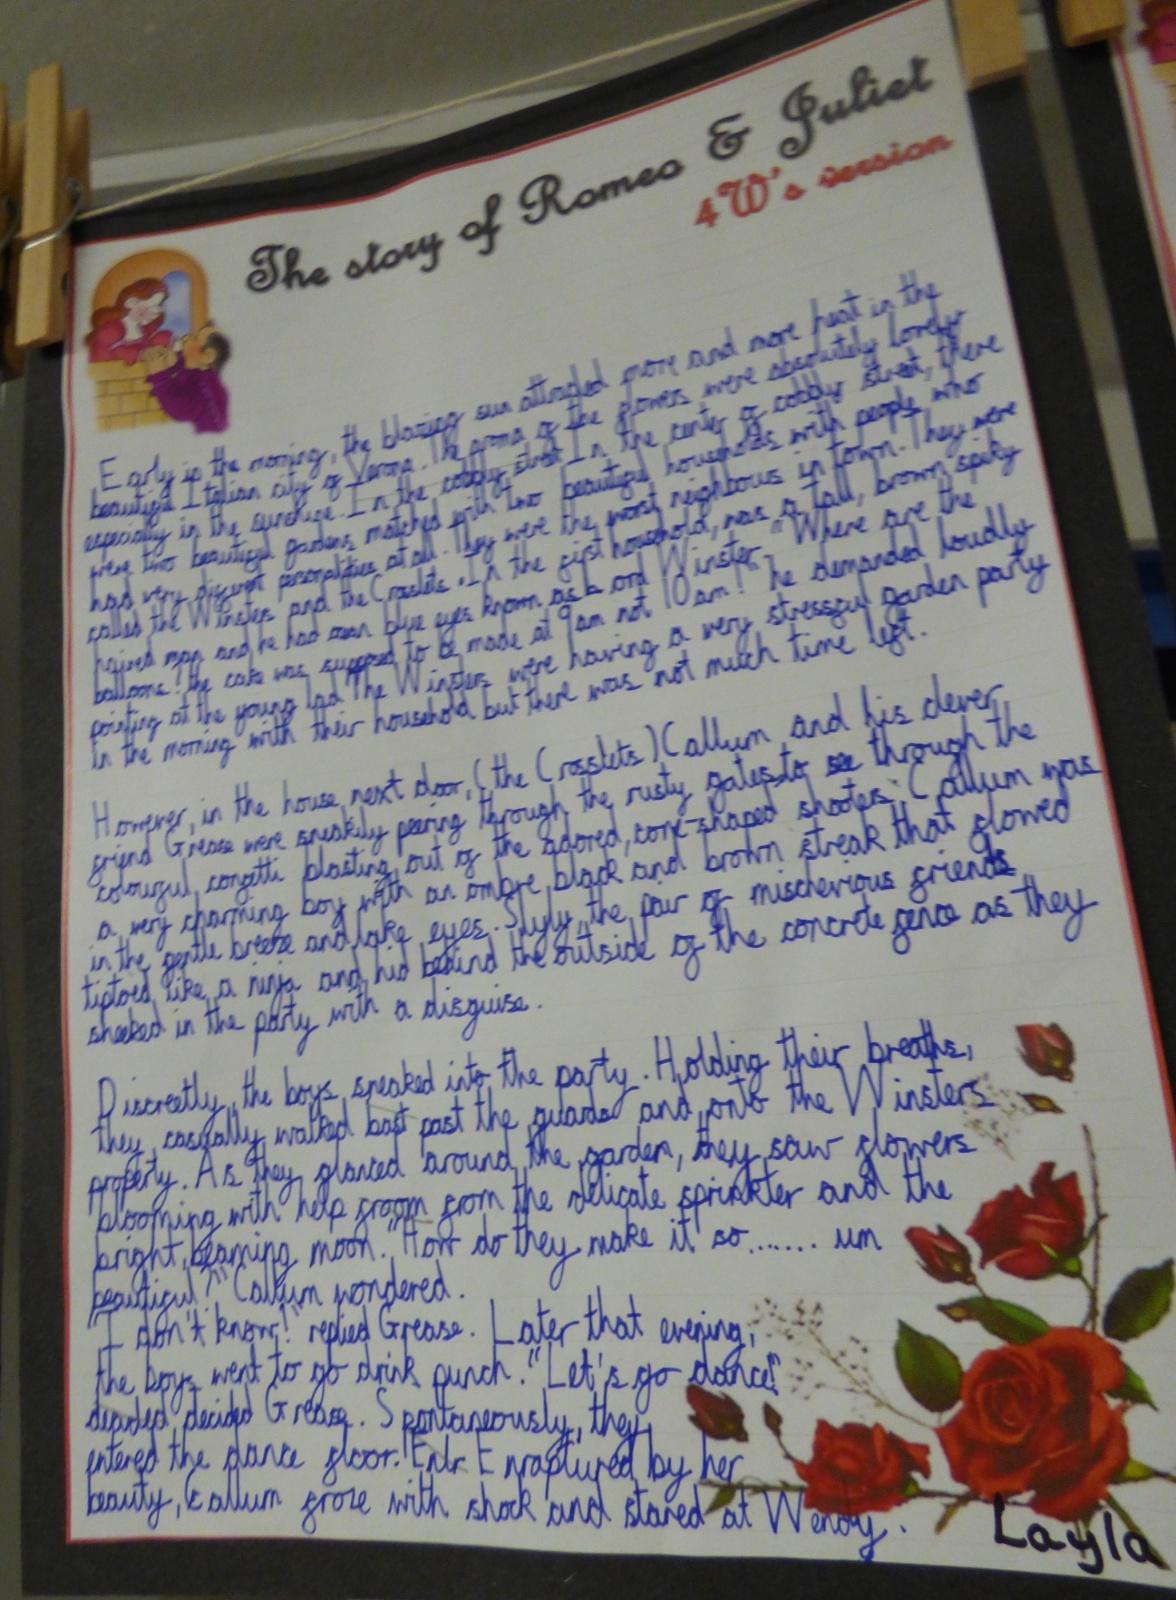 The story of Romeo & Juliet
4W's version
Early in the morning, the blazing sun attracted more and more heat in the
beautiful Italian city of Verona. The aroma of the flowers were absolutely lovely
especially in the sunshine. In the cobbly street In the center of cobbly street, there
were two beautiful gardens matched with two beautiful households with people who
had very different personalities at all. They were the worst neighbours in town. They were
called the Winsters and the Crosslets. In the first household, was a tall, brown spiky
haired man and he had blue eyes known as Lord Winster. "Where are the
balloons? the cake was supposed to be made at 9am not 10am!" he demanded loudly
pointing at the young lad. The Winsters were having a very stressful garden party
in the morning with their household but there was not much time left.
However, in the house next door, (the Crosslets) Callum and his clever
friend Grease were sneakily peering through the rusty gates to see through the
colourful, confetti blasting out of the adored, cone-shaped shooters. Callum was
a very charming boy with an ombre black and brown streak that flowed
in the gentle breeze and lake eyes. Slyly, the pair of mischevious friends
tiptoed like a ninja and hid behind the outside of the concrete fence as they
sneeked in the party with a disguise.
Discreetly, the boys sneaked into the party. Holding their breaths,
they casually walked past the guards and onto the Winsters
property. As they glanced around the garden, they saw flowers
blooming with help from the delicate sprinkler and the
bright, beaming moon. "How do they make it so....... um
beautiful?" Callum wondered.
"I don't know!" replied Grease. Later that evening,
the boys went to go drink punch. "Let's go dance!"
decided Grease. Spontaneously, they
entered the dance floor. Enraptured by her
beauty, Callum froze with shock and stared at Wendy.
Layla